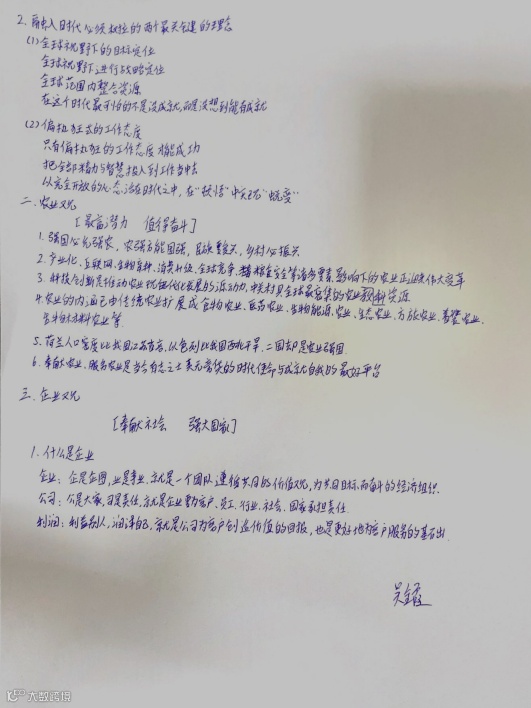 2. 融入时代必须树立的两个最关键的理念
(1) 全球视野下的目标定位
全球视野下进行战略定位
全球范围内整合资源
在这个时代最可怕的不是没成就,而是没想到能有成就
(2) 偏执狂式的工作态度
只有偏执狂的工作态度才能成功
把全部精力与智慧投入到工作当中去
以完全开放的心态活在时代之中,在"校悟"中实现"蜕变"
二. 农业文化
[最富潜力 值得奋斗]
1. 强国必先强农,农强方能国强,民族要复兴,乡村必振兴
2. 产业化、互联网、生物育种、消费升级、全球竞争、粮食安全等诸多要素影响下的农业正迎来伟大变革
3. 科技创新是推动农业现代化发展的源动力,中关村具全球最密集的农业资源
4. 农业的内涵已由传统农业扩展成食物农业、医药农业、生物能源农业、生态农业、旅农业、
生物材料农业等
5. 荷兰人口密度比我国江苏省高,以色列比我国西北干旱,二国却是农业强国
6. 奉献农业、服务农业是当今有志之士责无旁贷的时代使命与成就自我的最好平台
三. 企业文化
[奉献社会 强大国家]
1. 什么是企业
企业:企是企图,业是事业,就是一个团队遵循共同的价值文化,为共同目标而奋斗的经济组织.
公司:公是大家,司是责任,就是企业要为客户、员工、行业、社会、国家承担责任.
利润:利益别人,润泽自己,就是公司为客户创造价值的回报,也是更好地为客户服务的基石出.
大数跨境